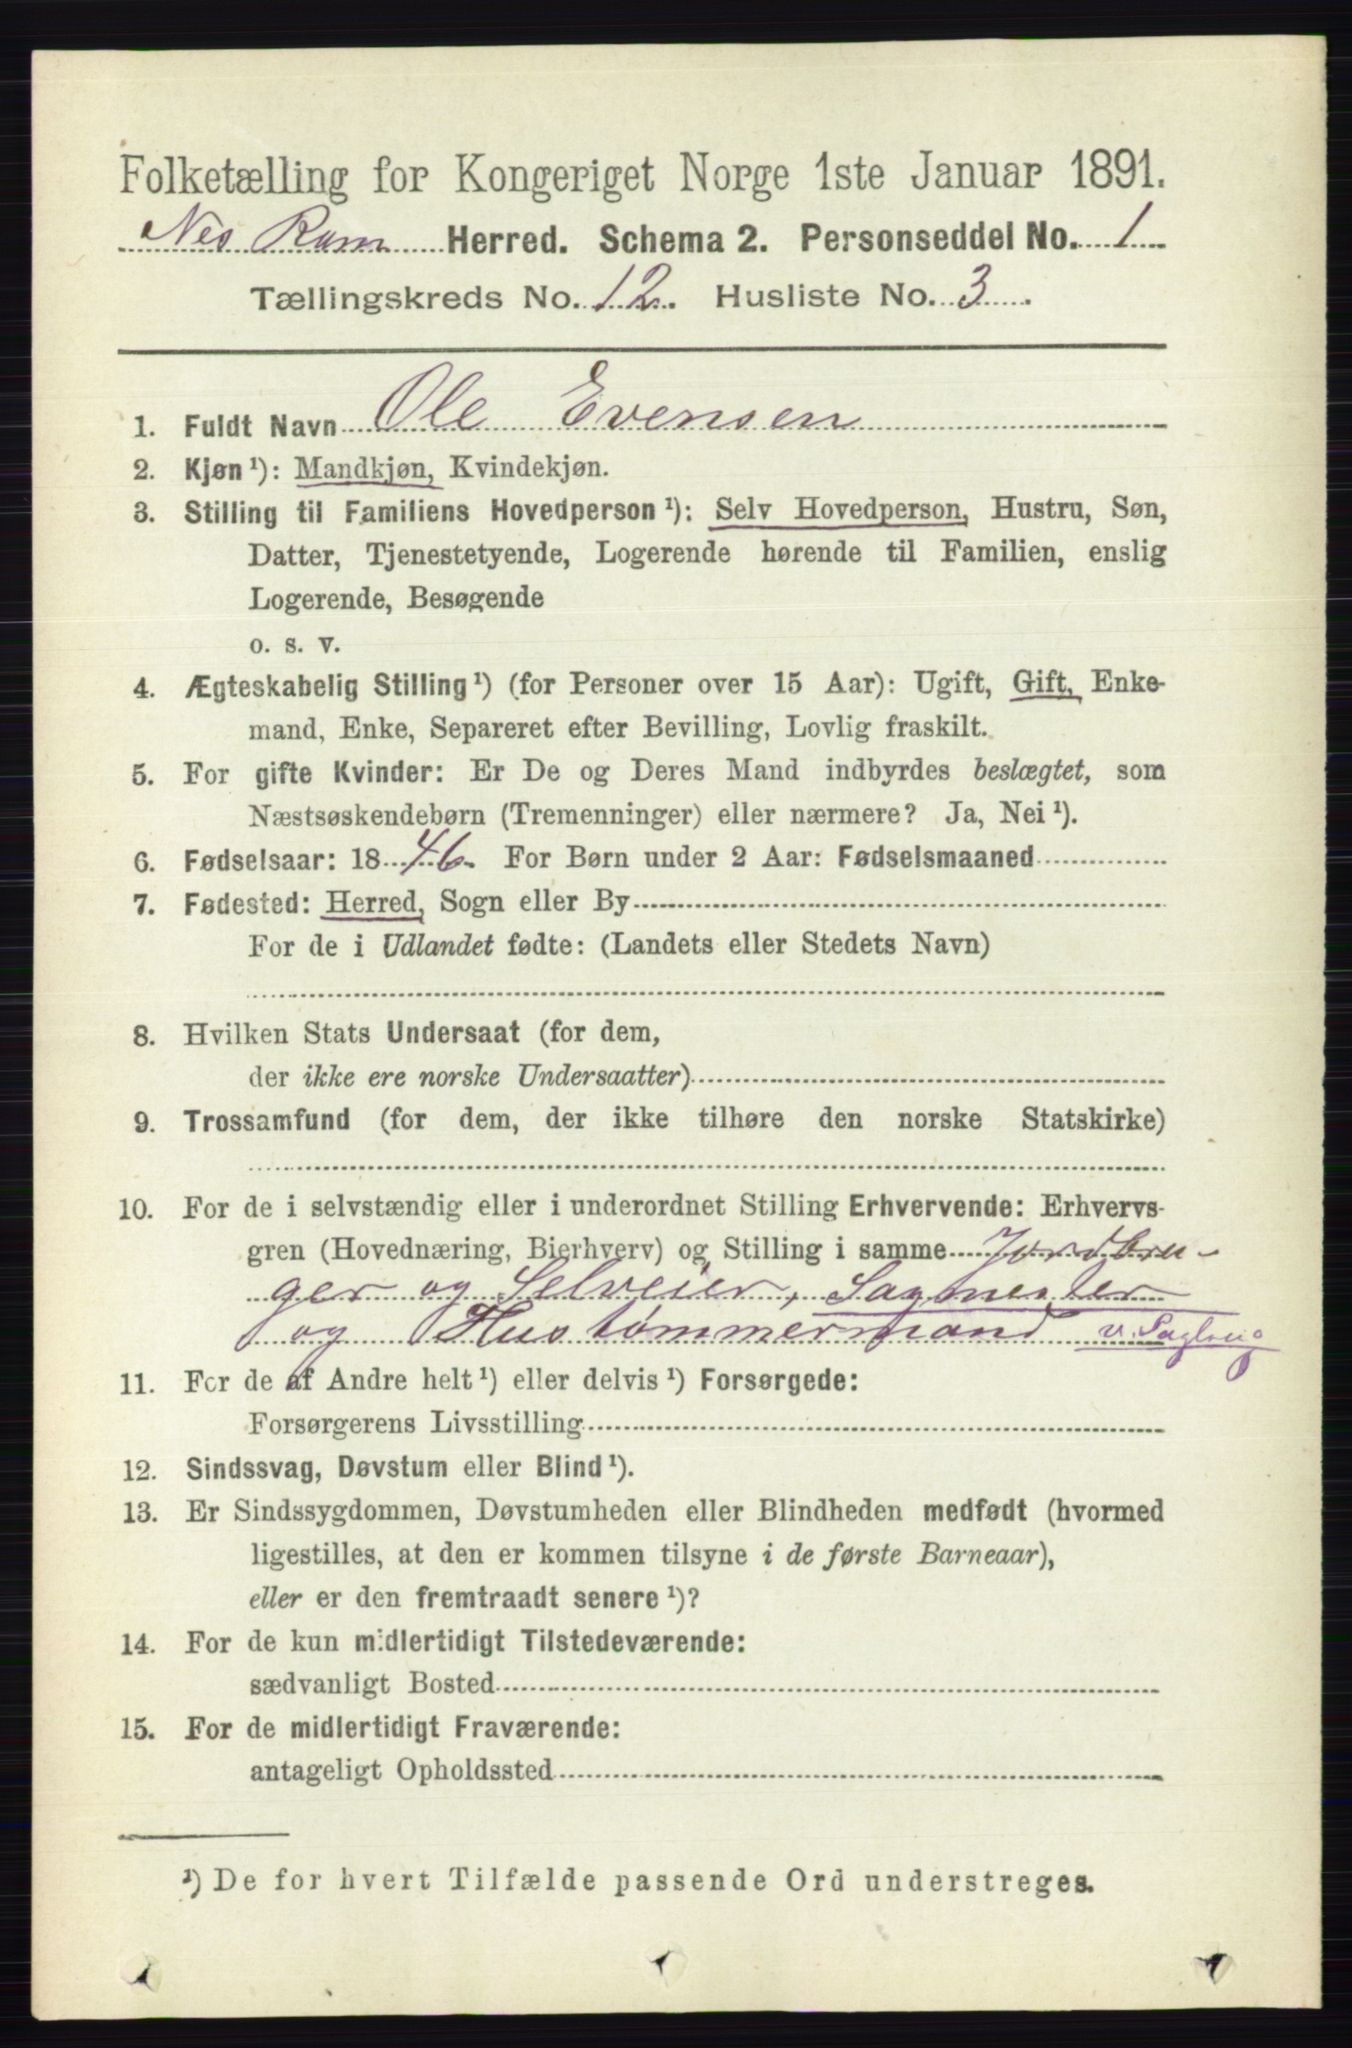 Folketælling for Kongeriget Norge 1ste Januar 1891.
Nes Rom Herred. Schema 2. Personseddel No. 1
Tællingskreds No. 12. Husliste No. 3.
1. Fuldt Navn Ole Evensen
2. Kjøn ¹): Mandkjøn, Kvindekjøn.
3. Stilling til Familiens Hovedperson ¹): Selv Hovedperson, Hustru, Søn,
Datter, Tjenestetyende, Logerende hørende til Familien, enslig
Logerende, Besøgende
o. s. v.
4. Ægteskabelig Stilling ¹) (for Personer over 15 Aar): Ugift, Gift, Enke-
mand, Enke, Separeret efter Bevilling, Lovlig fraskilt.
5. For gifte Kvinder: Er De og Deres Mand indbyrdes beslægtet, som
Næstsøskendebørn (Tremenninger) eller nærmere? Ja, Nei ¹).
6. Fødselsaar: 1846. For Børn under 2 Aar: Fødselsmaaned
7. Fødested: Herred, Sogn eller By
For de i Udlandet fødte: (Landets eller Stedets Navn)
8. Hvilken Stats Undersaat (for dem,
der ikke ere norske Undersaatter)
9. Trossamfund (for dem, der ikke tilhøre den norske Statskirke)
10. For de i selvstændig eller i underordnet Stilling Erhvervende: Erhvervs-
gren (Hovednæring, Bierhverv) og Stilling i samme Jordbru-
ger og Selveier, Sagmester
og Hustømmermand v. Sagbrug
11. For de af Andre helt ¹) eller delvis ¹) Forsørgede:
Forsørgerens Livsstilling
12. Sindssvag, Døvstum eller Blind ¹).
13. Er Sindssygdommen, Døvstumheden eller Blindheden medfødt (hvormed
ligestilles, at den er kommen tilsyne i de første Barneaar),
eller er den fremtraadt senere ¹)?
14. For de kun midlertidigt Tilstedeværende:
sædvanligt Bosted
15. For de midlertidigt Fraværende:
antageligt Opholdssted
¹) De for hvert Tilfælde passende Ord understreges.